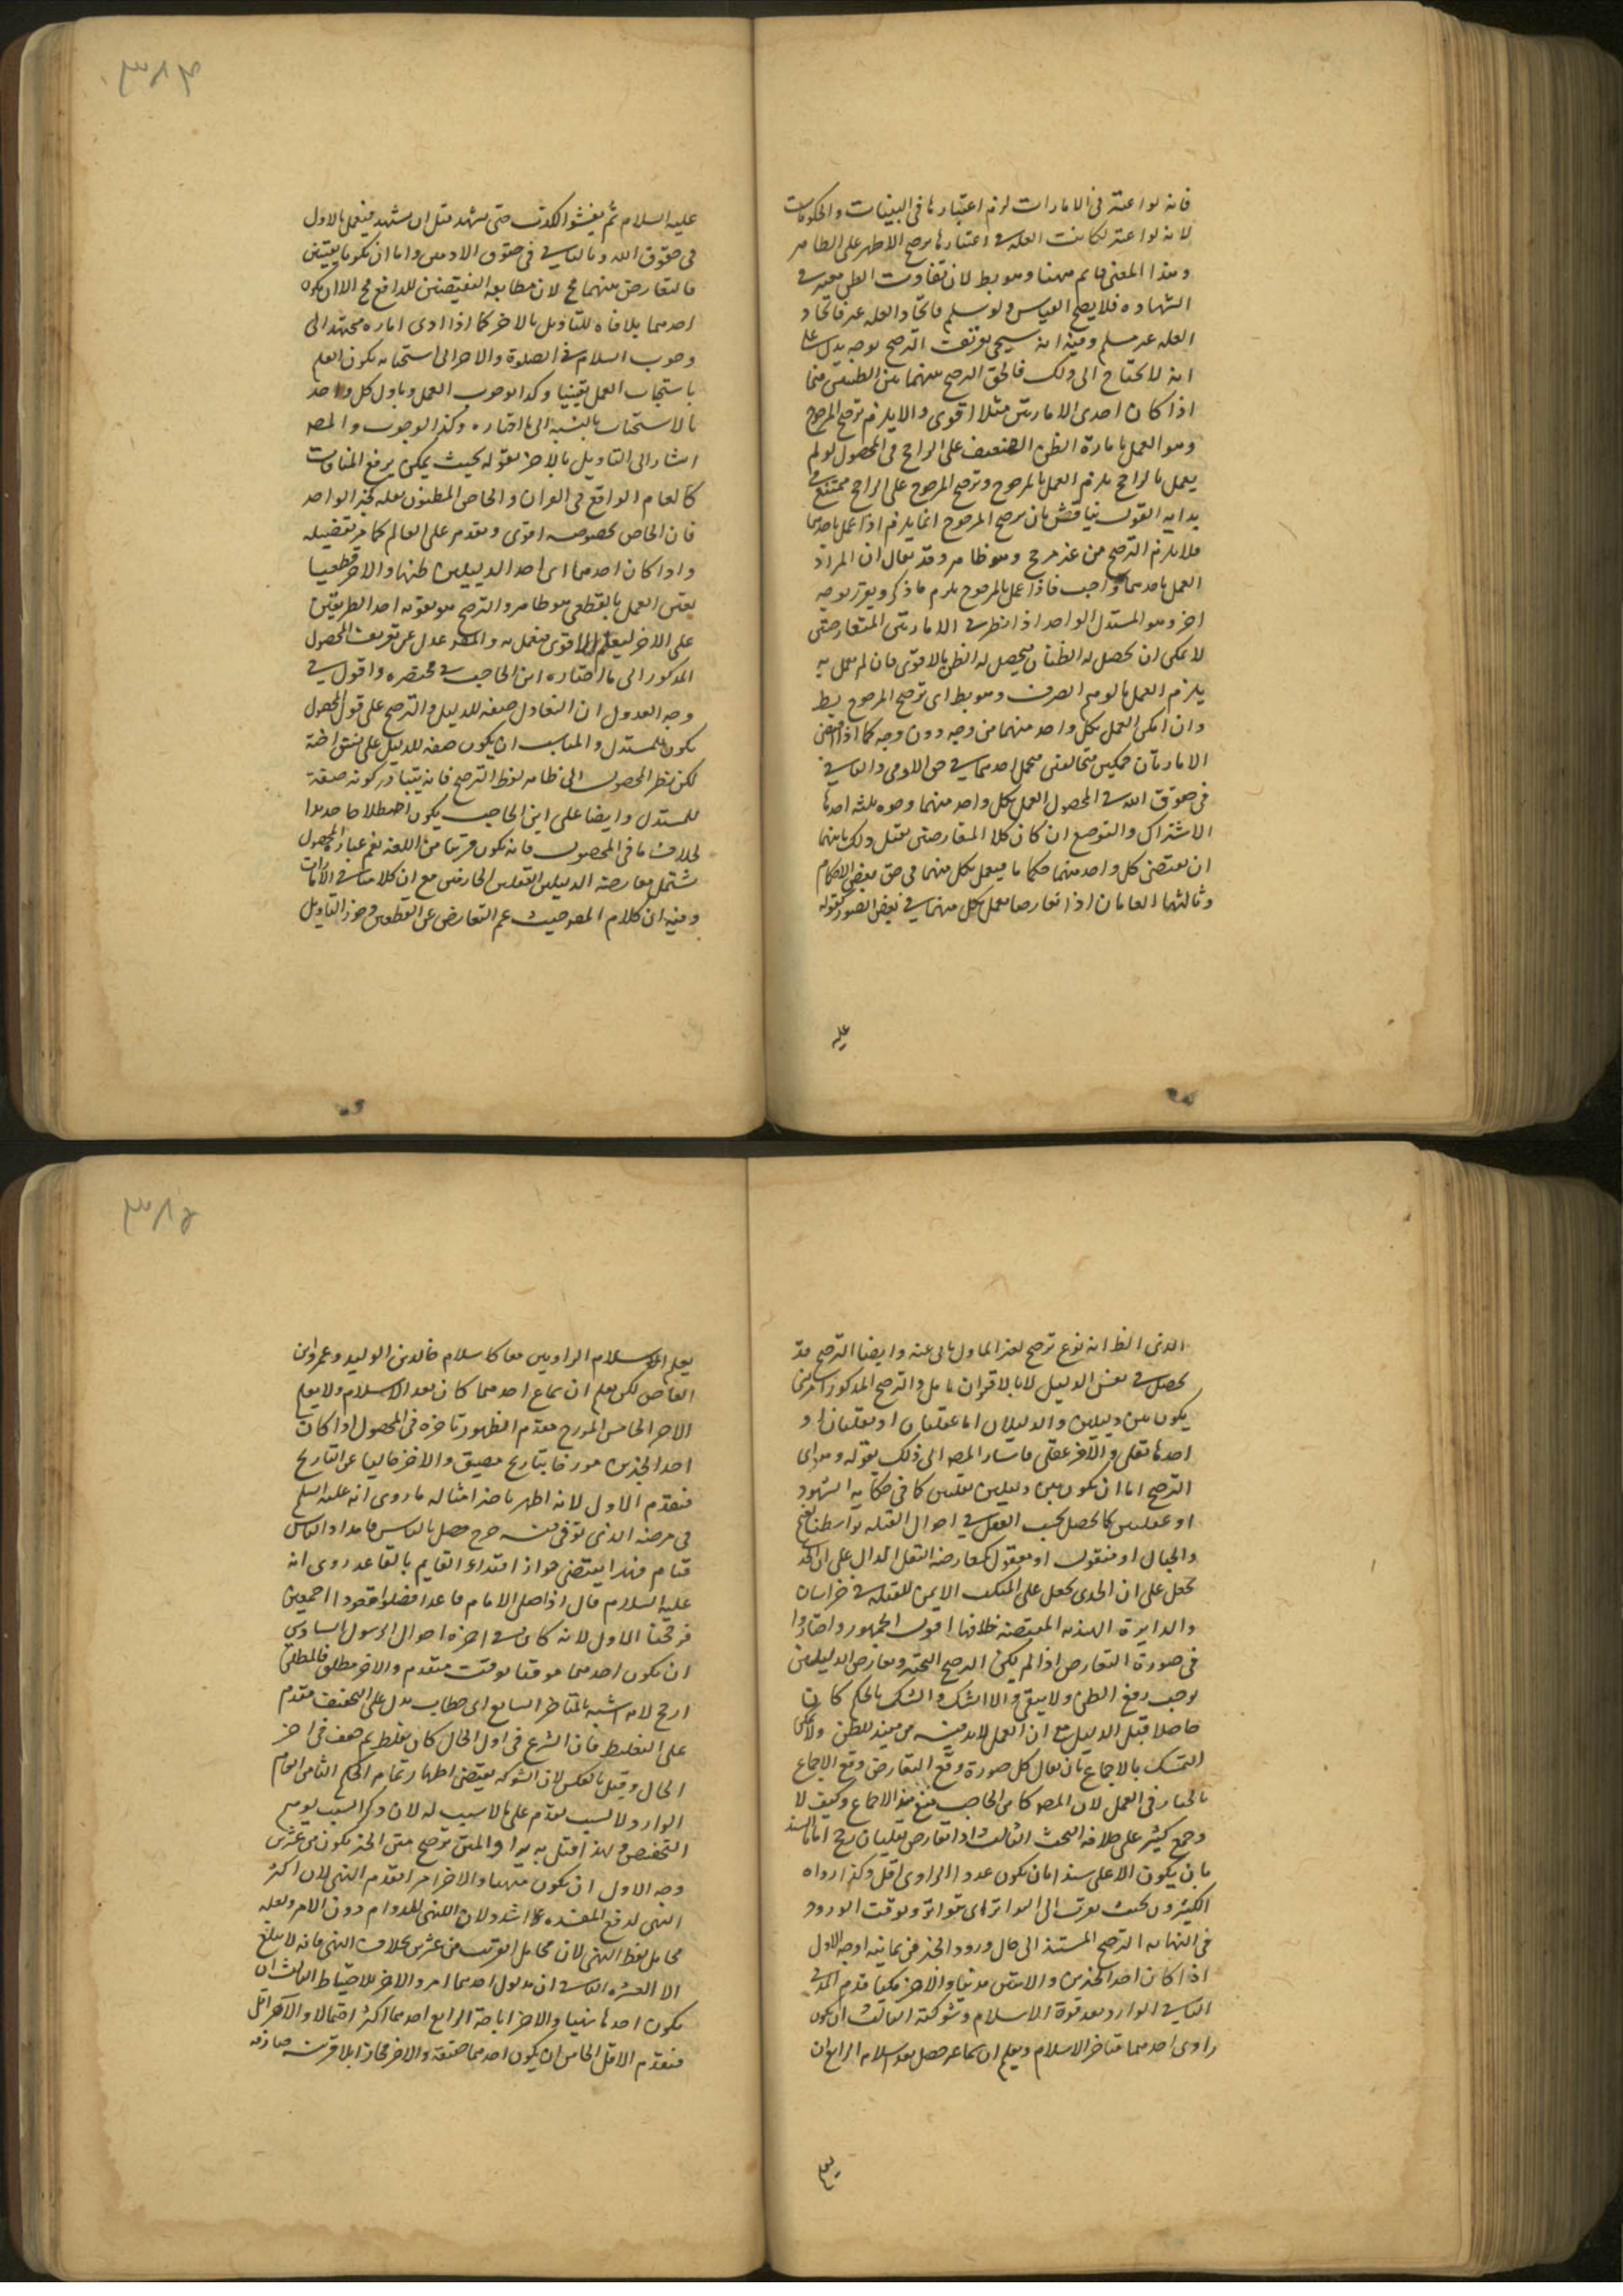 فانه لو اعتبر فى الامارات لزم اعتبارها فى البينات والحكومات
لانه لو اعتبر لكانت العلة فى اعتبارها ترجح الاظهر على الظاهر
وهذا المعنى قايم ههنا وهو بط لان تفاوت الظن معتبر فى
الشهاده فلا يصح القياس ولو سلم فاتحاد العله غير فاتحاد
العله غير مسلم وفيه انه سيجى توقف الترجيح بوجه يدل على
انه لا يحتاج الى ذلك فالحق الترجيح بينهما
اذا كان احدى الامارتين مثلا اقوى والا يلزم ترجيح المرجوح
وهو العمل بامارة الظن الضعيف على الراجح فى المحصول لو لم
يعمل بالراجح يلزم العمل بالمرجوح وترجيح المرجوح على الراجح ممتنع فى
بدايه العقول يناقش بان ترجيح المرجوح انما يلزم اذا عمل باحدهما
فلا يلزم الترجيح من غير مرجح وهو ظاهر وقد يقال ان المراد
العمل باحدهما واجب فاذا عمل بالمرجوح يلزم ما ذكر ويقرر بوجه
اخر وهو المستدل الواحد اذا نظر فى الامارتين المتعارضتين
لا يمكن ان يحصل له الظنان فيحصل له الظن بالاقوى فان لم يعمل به
يلزم العمل بالوهم الصرف وهو بط اى ترجيح المرجوح بط
وان امكن العمل بكل واحد منهما من وجه دون وجه كما اذا اقتضى
الامارتان حكمين متخالفين فيحمل احدهما فى حق الادمى والثانى
فى حقوق الله فى المحصول العمل بكل واحد منهما وجوه ثلثه احدها
الاشتراك والتوزيع ان كان كلا المتعارضين يقبل ذلك ثانيهما
ان يقتضى كل واحد منهما حكما ما فيعمل بكل منهما فى حق بعض الاحكام
وثالثها العامان اذا تعارضا يعمل بكل منهما فى بعض الصور كقوله
عليه
٣٨٤
عليه السلام ثم يفشو الكذب حتى يشهد قبل ان يستشهد فيعمل بالاول
فى حقوق الله وبالثانى فى حقوق الادميين واما ان يكونا يقينيين
فالتعارض بينهما مح لان مطابقه النقيضين للواقع مح الا ان يكون
احدهما للتاويل بالاخر كما اذا ادى اماره مجتهد الى
وجوب السلام فى الصلوة والاخر الى استحبابه يكون العلم
باستحباب العمل يقينيا وكذا لوجوب العمل وياول كل واحد
بالاستحباب بالنسبة الى ما اختاره وكذا لوجوب والمصـ
اشار الى التاويل بالاخر بقوله بحيث يمكن يرفع المنافات
كالعام الواقع فى القران والخاص المظنون نقله بخبر الواحد
فان الخاص بخصوصه اقوى ويقدم على العالم كما مر تفضيله
واذا كان احدهما اى احد الدليلين ظنيا والاخر قطعيا
يعين العمل بالقطعى هو ظاهر والترجيح هو تقويه احد الطريقين
على الاخر ليعلم الاقوى فيعمل به والمصـ عدل عن تعريف المحصول
المذكور الى ما اختاره ابن الحاجب فى مختصره واقول فى
وجه العدول ان التعادل صفه للدليل والترجيح على قول المحصول
يكون للمستدل والمناسب ان يكون صفه للدليل على
لكن نظر المحصول الى ظاهر لفظ الترجيح فانه يتبادر كونه صفة
للمستدل وايضا على ابن الحاجب يكون اصطلاحا جديدا
بخلاف ما فى المحصول فانه يكون قريبا من اللغه نعم عبارة المحصول
يشتمل معارضه الدليلين العقليين الخارجين مع ان كلامنا فى الامارات
وفيه ان كلام المصـ حيث عم التعارض عن القطعيين وجوز التاويل
الذى الظ انه نوع ترجيح لغير الماول يابى عنه وايضا الترجيح قد
يحصل فى نفس الدليل لا بالاقران تامل والترجيح المذكور
يكون بين دليلين والدليلان اما عقليان او نقليان او
احدها نقلى والاخر عقلى فاشار المصـ الى ذلك بقوله وهو اى
الترجيح اما ان يكون بين دليلين نقليين كما فى حكايه الشهود
او عقليين كما يحصل بحسب العقل فى احوال القبله بواسطه
والجبال او منقول او معقول كمعارضه النقل الدال على ان الجدى
يجعل على ان الجدى يجعل على المنكب الايمن للقبله فى خراسان
والدايرة الهنديه المقتضيه خلافها اقول الجمهور واختاروا
فى صورة التعارض اذا لم يكن الترجيح التخيير وتعارض الدليلين
يوجب رفع الظن ولا يبقى والا الشك والشك بالحكم كان
حاصلا قبل الدليل مع ان العمل لا بد فيه من مفيد للظن ولا يمكن
التمسك بالاجماع بان يقال كل صورة وقع التعارض وقع الاجماع
بالخيار فى العمل لان المصـ كابن الحاجب منع هذا الاجماع وكيف لا
وجمع كثير على خلافه البحث الثالث اذا تعارض نقليان رجح اما السند
بان يكون الاعلى سندا بان يكون عدد الراوى اقل وكذا رواه
الكثيرون بحيث يقرب الى التواتر اى متواتر وبوقت الورود
فى النهايه الترجيح المستند الى حال ورود الخبر من ثمانيه اوجه الاول
اذا كان احد الخبرين والايتين مدنيا والاخر مكيا قدم المدنى
الثانى الوارد بعد قوة الاسلام وشوكته الثالث ان يكون
راوى احدهما متاخر الاسلام ويعلم ان سماعه حصل بعد اسلامه الرابع ان
٣٨٥
يعلم اسلام الراويين معا كاسلام خالد بن الوليد وعمرو بن
العاص لكن يعلم ان سماع احدهما كان بعد الاسلام ولا يعلم
الاخر الخامس المورخ مقدم لظهور تاخره فى المحصول اذا كان
احد الخبرين مورخا بتاريخ مضيق والاخر خاليا عن التاريخ
فيقدم الاول لانه اظهر تاخرا مثاله ما روى انه عليه السلم
فى مرضه الذى توفى فيه خرج فصلى بالناس قاعدا والناس
قيام فهذا يقتضى جواز اقتداء القايم بالقاعد روى انه
عليه السلام قال اذا صلى الامام قاعدا فصلوا قعودا اجمعين
فرجحنا الاول لانه كان فى اخر احوال الرسول السادس
ان يكون احدهما موقتا بوقت متقدم والاخر مطلق فالمطلق
ارجح لانه اشبه بالمتاخر السابع اى خطاب يدل على التخفيف مقدم
على التغليظ فان الشرع فى اول الحال كان يغلظ ثم خفف فى اخر
الحال وقيل بالعكس لان الشوكه يقتضى اظهار تمام الحكم الثامن العام
الوارد لا لسبب يقدم على ما لا سبب له لان ذكر السبب يوهم
التخصيص ولهذا قيل به بدا والمتن ترجيح متن الخبر يكون من عشرين
وجه الاول ان يكون منهيا والاخر امرا يقدم النهى لان اكثر
النهى لدفع المفسده اشد ولان النهى للدوام دون الامر ولقله
محامل لفظ النهى لان محامل الامر يقرب من عشرين بخلاف النهى فانه لا يبلغ
الا العشره الثانى ان مدلول احدهما امر والاخر للاحتياط الثالث ان
يكون احدها نهيا والاخر اباحة الرابع احدهما اكثر احتمالا والاخر اقل
فيقدم الاقل الخامس ان يكون احدهما حقيقة والاخر مجازا بلا قرينه صارفه